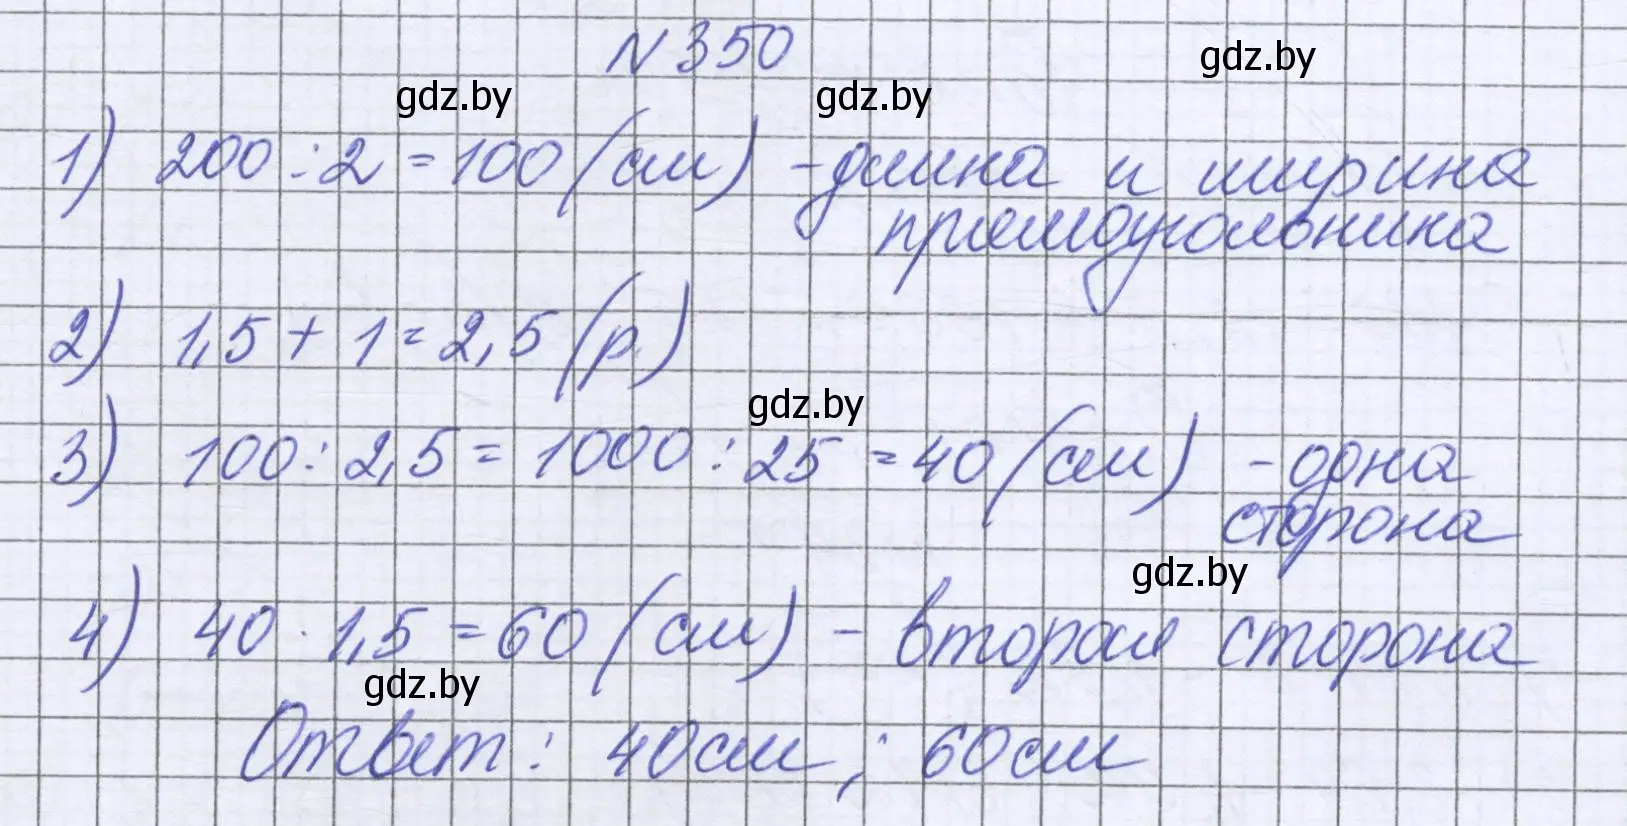 N 350
gdz.by
gdz.by
gdz.by
1) 200 : 2 = 100 (см) - длина и ширина
прямоугольника
2) 1,5 + 1 = 2,5 (р.)
gdz.by
3) 100 : 2,5 = 1000 : 25 = 40 (см) - одна
сторона
gdz.by
4) 40 · 1,5 = 60 (см) - вторая сторона
gdz.by
Ответ: 40см ; 60см